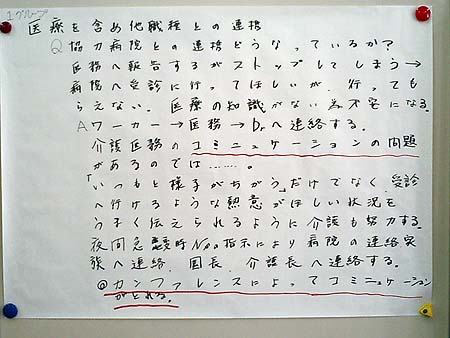 1グループ
医療を含め他職種との連携
Q 協力病院との連携どうなっているか?
医務へ報告するがストップしてしまう→
病院へ受診に行ってほしいが、行っても
らえない。医療の知識がない為不安になる。
A ワーカー→医務→Drへ連絡する。
介護医務のコミニュケーションの問題
があるのでは……。
「いつもと様子がちがう」だけでなく、受診
へ行けるような熱意がほしい 状況を
うまく伝えられるように介護も努力する。
夜間急変時Nsの指示により病院の連絡家
族へ連絡、園長、介護長へ連絡する。
◎カンファレンスによってコミニュケーション
がとれる。